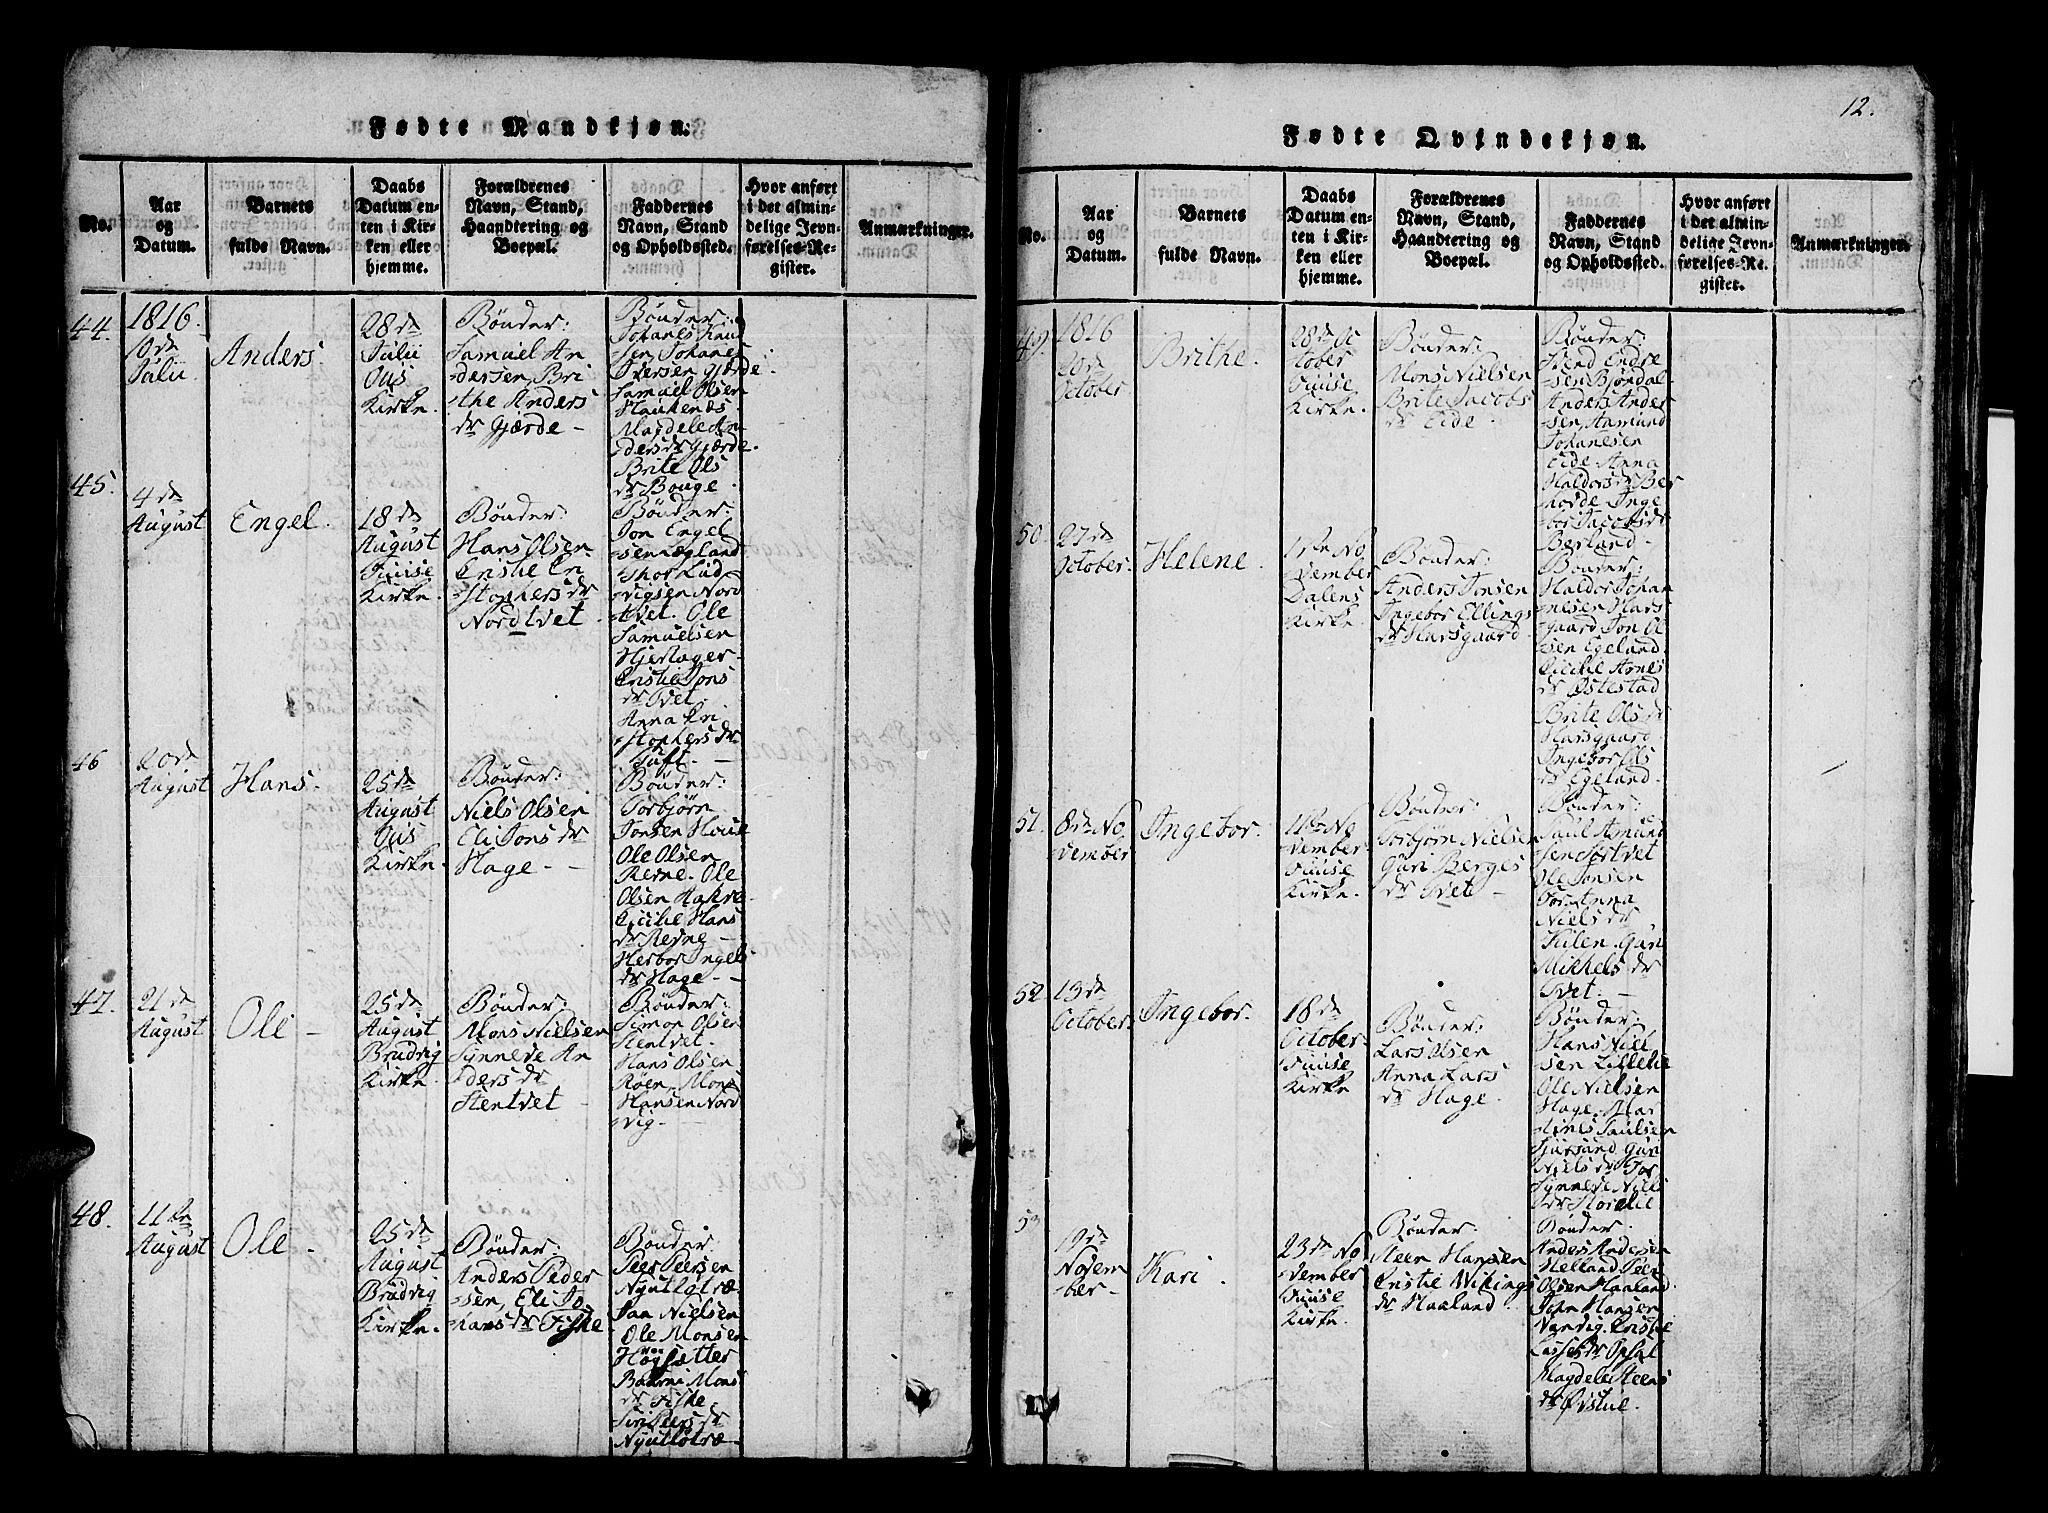 Fødte Mandkjøn:
No.
Aar
og
Datum.
Barnets
fulde Navn.
Daabs
Datum en-
ten i Kir-
ken eller
hjemme.
Forældrenes
Navn, Stand,
Haandtering og
Boepæl.
Faddernes
Navn, Stand
og Opholdssted.
Hvor anført
i det almin-
delige Jevn-
førelses-Re-
gister.
Anmærkninger.
44.
1816.
10de
Julii
Anders.
28de
Julii
Ous
Kirke.
Bønder:
Samuel An
dersen, Bri
the Anders
dr Gjærde -
Bønder:
Johanes
sen, Johanes
Gjærde
Samuel Olsen
Magdele An
ders dr Gjærde.
Brite Ols
dr Bouge.
45.
4de
August
Engel.
18de
August
Fuuse
Kirke.
Bønder:
Hans Olsen
Cristie Cri
stophers dr
Nordtvet
Bønder:
Jon Engel
sen Lægland
Thor Lud
vigsen Nord
tvet. Ole
Samuelsen
Hjertager
Cristie Jons
dr Tvet.
Anna Kri
stophers dr
Tuft. -
46
20de
August
Hans.
25de
August
Ous
Kirke.
Bønder:
Niels Olsen
Eli Jons dr
Hage. -
Bønder:
Torbjørn
Jonsen
Ole Olsen
Revne. Ole
Olsen Hakre
Cicilie Hans
dr Revne
Herbor Ingels
dr Hage - -
47.
21de
August
Ole -
25de
August
Brudvig
Kirke.
Bønder:
Mons Nielsen
Synneve An
ders dr
Stentvet -
Bønder:
Simon Olsen
Stentvet.
Hans Olsen
Røen. Mons
Hansen Nord
vig. -
48.
11te
August
Ole -
25de
August
Brudvig
Kirke.
Bønder:
Anders Peder
sen, Eli Jo
hans dr Fiske
Bønder:
Peer Peersen
Nyutløtræ
Jan Nielsen
Ole Monsen
Høgsætter
Baarni Mons
dr Fiske
Siri Peers dr
Nyutløtræ -
12.
Fødte Qvindekjøn.
No.
Aar
og
Datum.
Barnets
fulde Navn.
Daabs
Datum en-
ten i Kir-
ken eller
hjemme.
Forældrenes
Navn, Stand,
Haandtering og
Boepæl.
Faddernes
Navn, Stand
og Opholdssted.
Hvor anført
i det almin-
delige Jevn-
førelses-Re-
gister.
Anmærkninger.
49.
1816
20de
October
Brithe.
28de Oc
tober
Fuuse
Kirke.
Bønder:
Mons Nielsen
Brite Jacobs
dr Eide.
Bønder:
Endre
sen Bjøndal
Anders Ander
sen, Aamund
Johanesen
Eide. Anna
Haldors dr Ber
hovde Inge
bor Jacobs dr
Berland -
50.
27de
October.
Helene.
17de No
vember
Dalens
Kirke.
Bønder:
Anders Jonsen
Ingebor Ellings
dr Harsgaard
Bønder:
Haldor Johan
nesen Hars
gaard, Jon Ol
sen Egeland
Cicilie Arnes
dr Østestad
Brite Ols dr
Harsgaard.
Ingebor Ols
dr Egeland.
51.
8de No
vember
Ingebor.
11te No
vember
Fuuse
Kirke.
Bønder:
Torbjørn Nielsen
Guri Berges
dr Tvet -
Bønder:
Paul Amund
sen Sørtvet
Ole Jonsen
Anna
Niels dr
Kilen. Guri
Mikkels dr
Tvet. -
52.
13de
October.
Ingebor.
18de
October
Fuuse
Kirke
Bønder:
Lars Olsen
Anna Lars
dr Hage.
Bønder:
Hans Niel
sen Lillelie
Ole Nielsen
Hage. Mar
Paulsen
Guri
Niels dr
Synneve Niels
dr
53
19de
Novem
ber -
Kari.
23de No
vember
Fuuse
Kirke.
Bønder:
Steen Hansen
Cristie Wikings
dr Haaland.
Bønder.
Anders Andersen
Helland. Peer
Olsen Haaland
John Hansen
Vendig. Cristie
Lasses dr Opsal
Magdele Steens
dr Østlie.